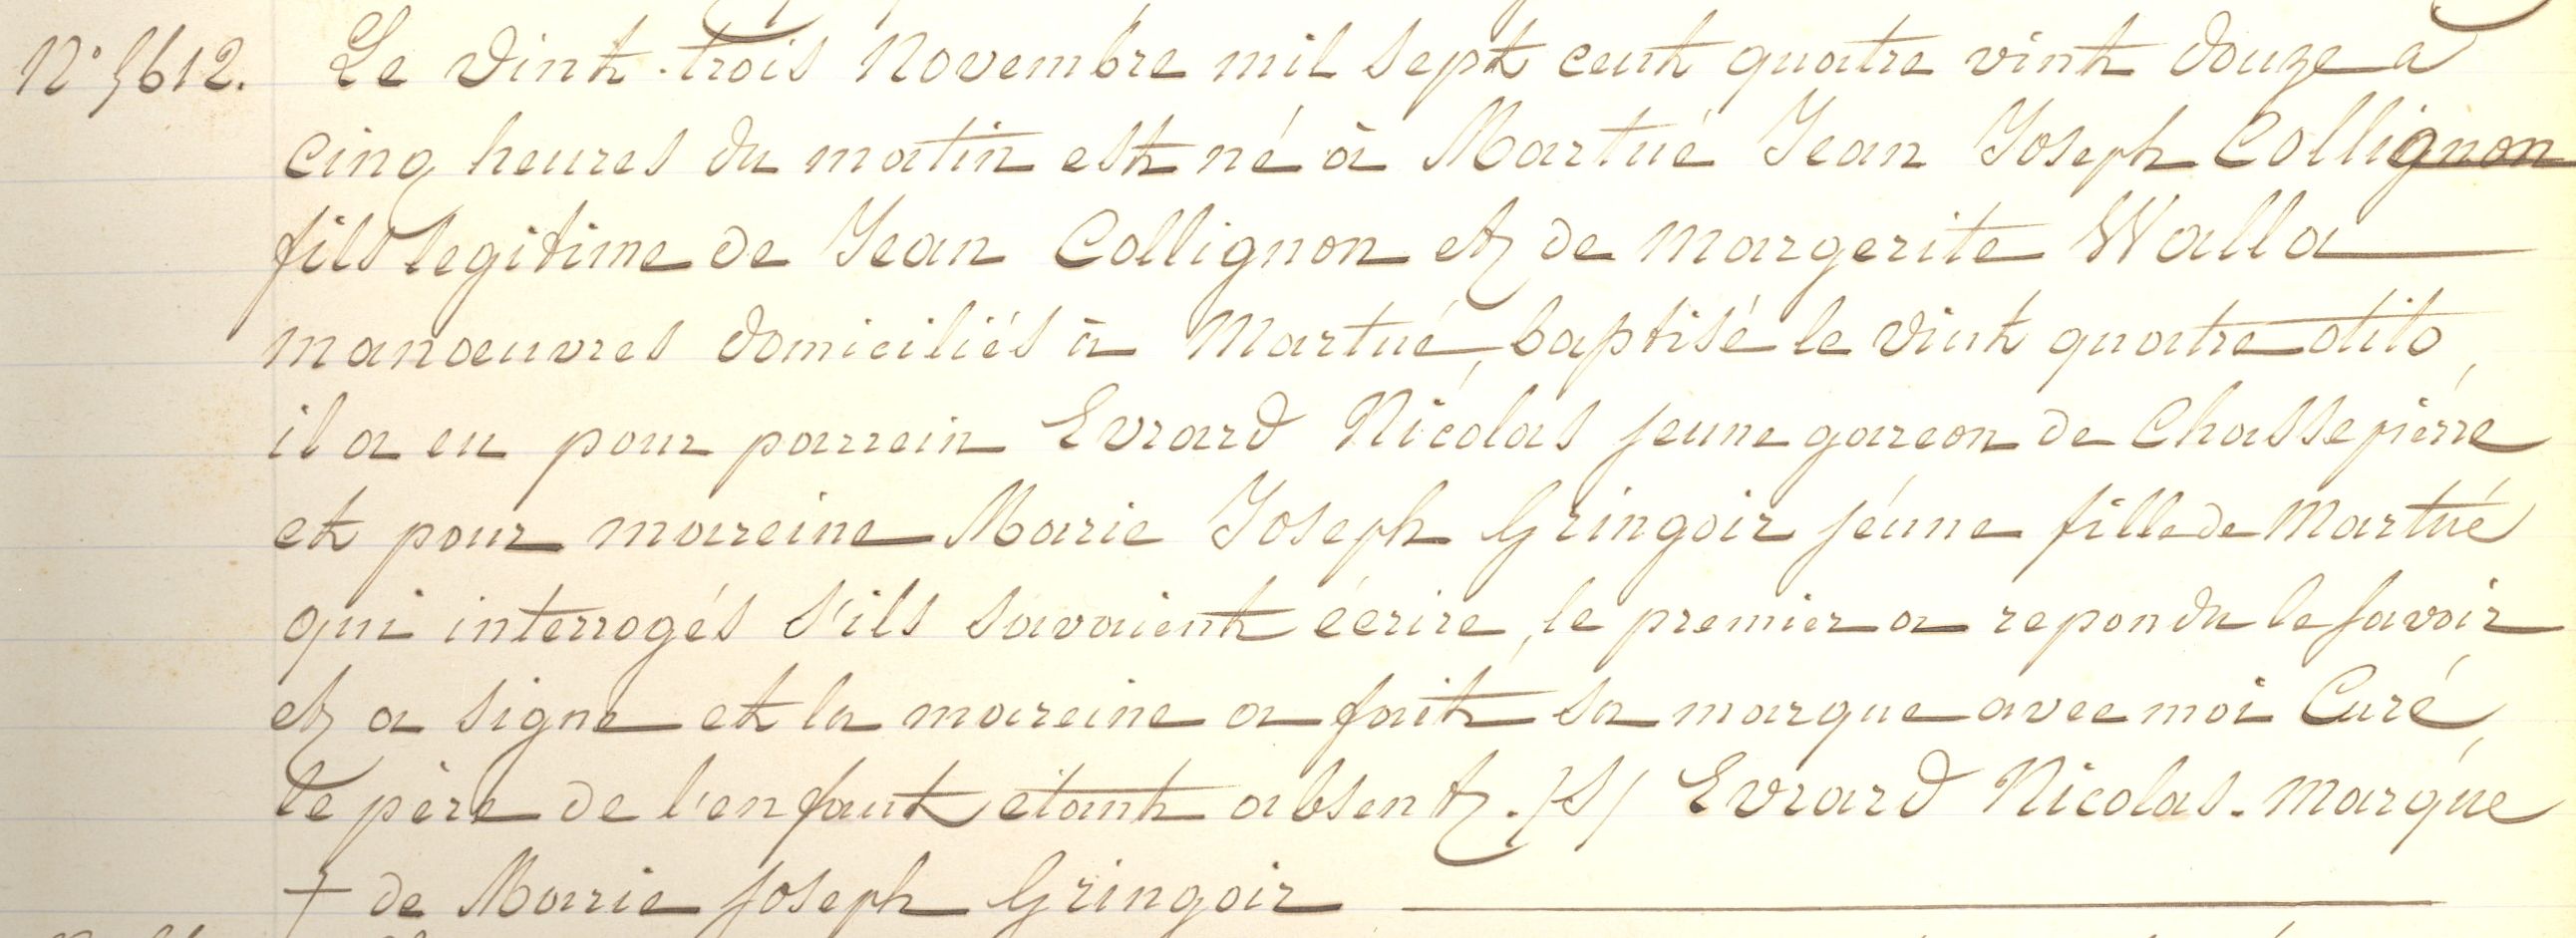 N° 5612. Le vint-trois Novembre mil sept cent quatre vint douze a
cinq heures du matin est né à Martué Jean Joseph Collignon
fils legitime de Jean Collignon et de Margerite Walla
manœuvres domiciliés à Martué, baptisé le vint quatre dito,
il a eu pour parrein Evrard Nicolas jeune garcon de Chassepierre
et pour mareine Marie Joseph Gringoir jeune fille de Martué
qui interrogés s'ils savaient écrire, le premier a repondu le savoir
et a signe et la mareine a fait sa marque avec moi Curé,
le père de l'enfant etant absent. /S/ Evrard Nicolas. Marque
+ de Marie Joseph Gringoir